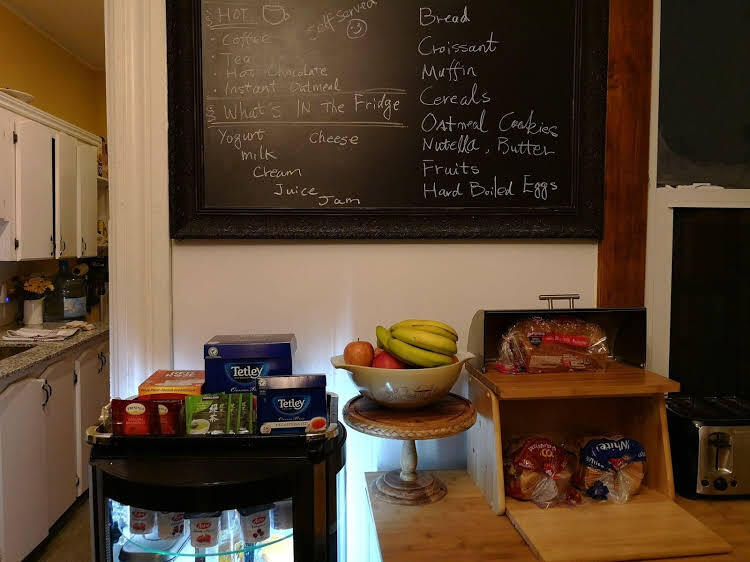 HOT
self served
- Coffee
- Tea
- Hot Chocolate
- Instant Oatmeal
What's IN The Fridge
Yogurt Cheese
milk
Cream
Juice
Jam
Bread
Croissant
Muffin
Cereals
Oatmeal Cookies
Nutella, Butter
Fruits
Hard Boiled Eggs
Tetley
Tetley
White